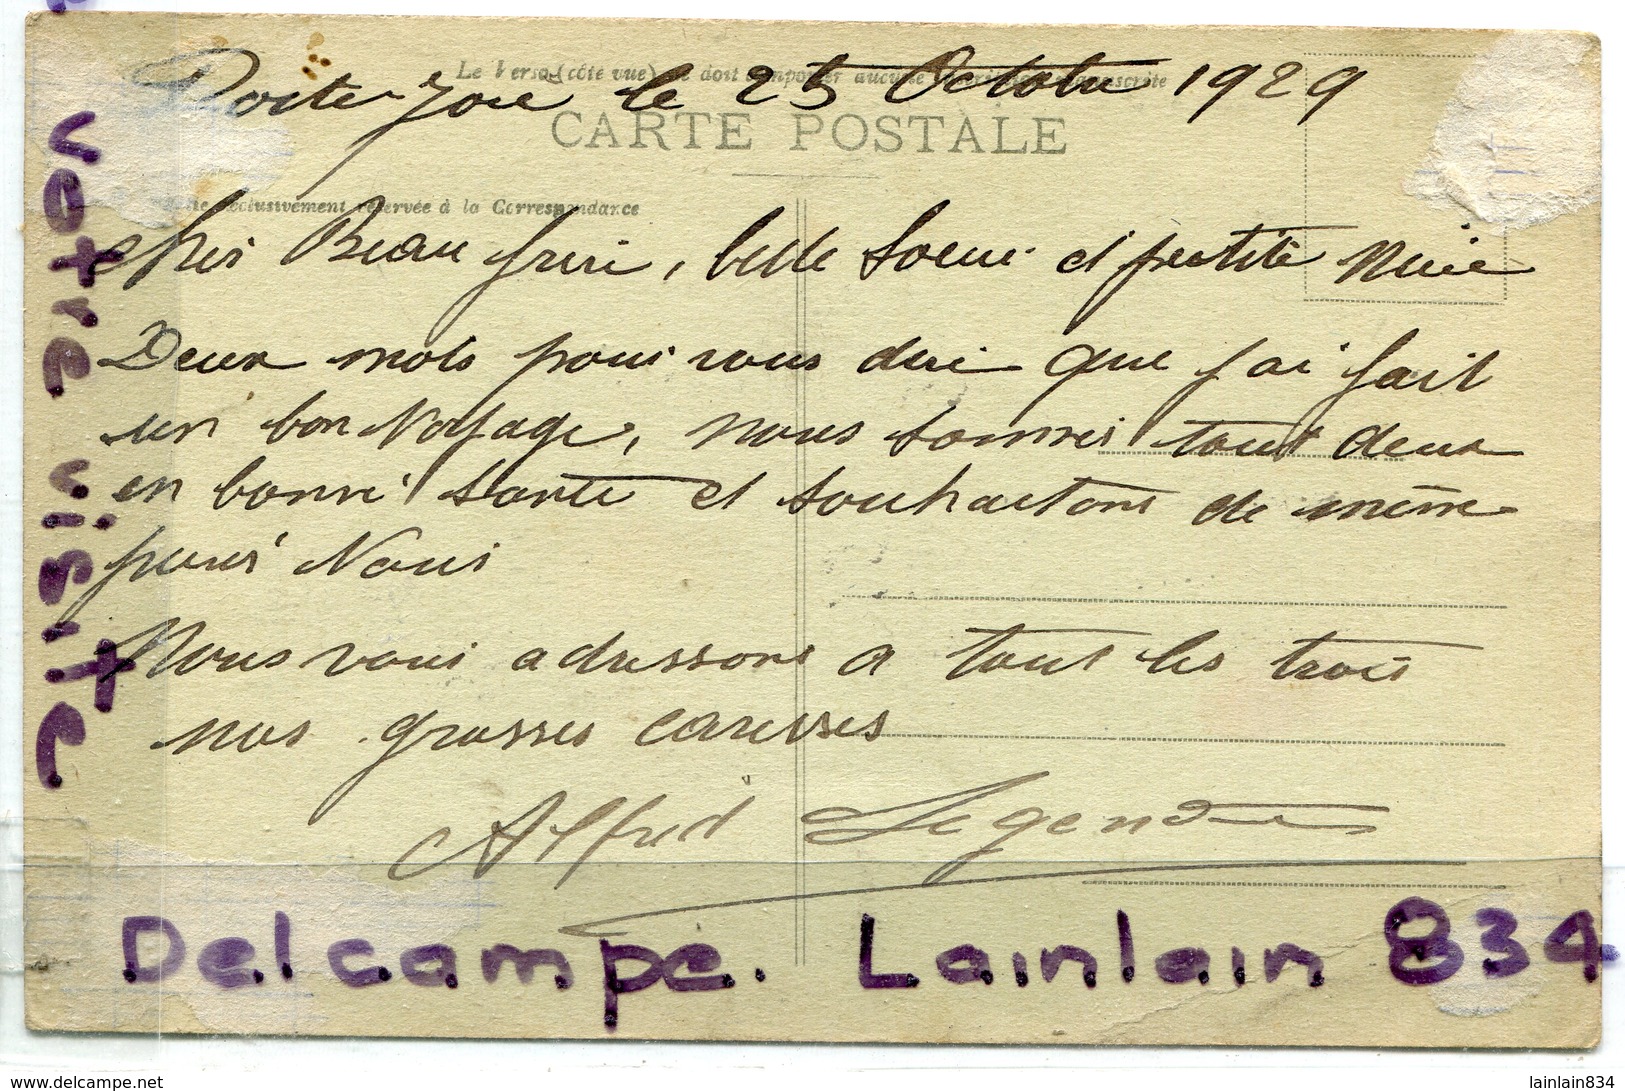 Porte-Joie le 25 Octobre 1929
Le Verso (côté vue) ne doit comporter aucune manuscrite
CARTE POSTALE
exclusivement réservée à la Correspondance
Cher Beau frère, belle Soeur et petite Nièce
Deux mots pour vous dire que j'ai fait
un bon Voyage, nous sommes tout deux
en bonne santé et souhaitons de même
pour Vous
Nous vous adressons a tout les trois
nos grosses caresses
Alfred Legendre
votre visite
Delcampe. Lainlain 834
www.delcampe.net
lainlain834